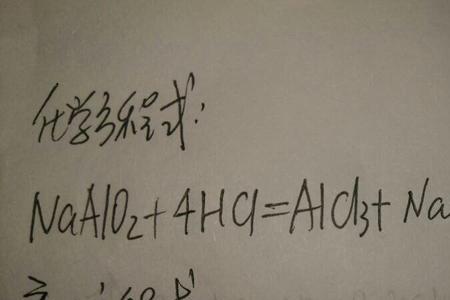 化学方程式:
NaAlO₂+4HCl=AlCl₃+Na